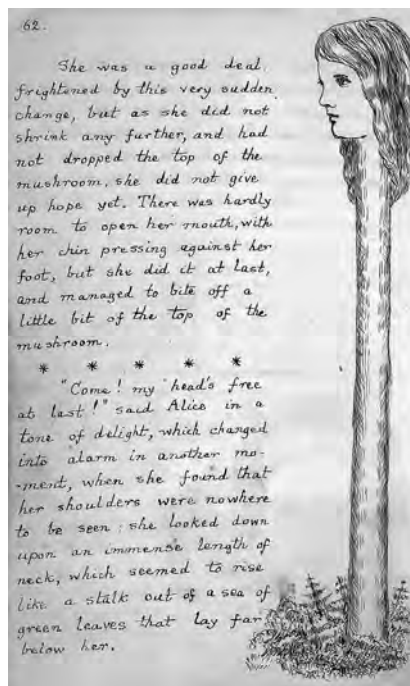 62.
She was a good deal
frightened by this very sudden
change, but as she did not
shrink any further, and had
not dropped the top of the
mushroom, she did not give
up hope yet. There was hardly
room to open her mouth, with
her chin pressing against her
foot, but she did it at last,
and managed to bite off a
little bit of the top of the
mushroom.
* * * * *
"Come! my head's free
at last!" said Alice in a
tone of delight, which changed
into alarm in another mo-
-ment, when she found that
her shoulders were nowhere
to be seen: she looked down
upon an immense length of
neck, which seemed to rise
like a stalk out of a sea of
green leaves that lay far
below her.